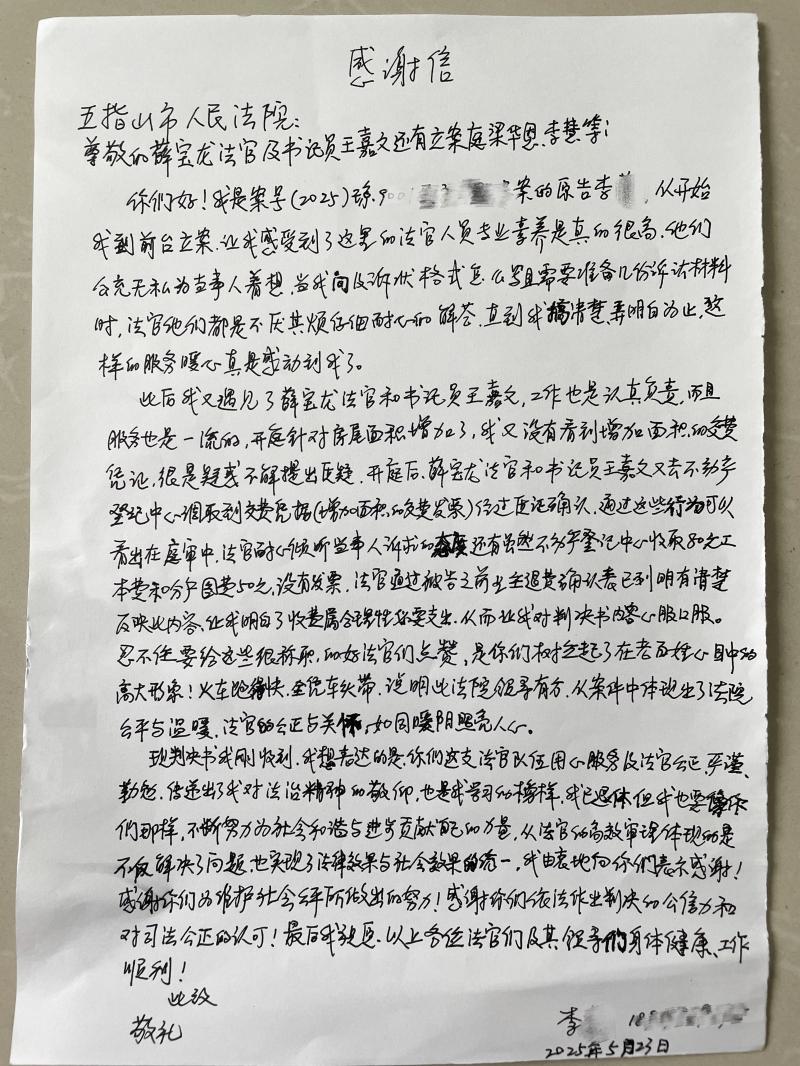 感谢信
五指山市人民法院:
尊敬的薛宝龙法官及书记员王嘉文还有立案庭梁华恩.李慧等:
你们好!我是案号(2025)琼.900 案的原告李 ,从开始
我到前台立案.让我感受到了这里的法官人员专业素养是真的很高.他们
充无私为当事人着想.当我问及诉状格式怎么写且需要准备几份诉讼材料
时,法官他们都是不厌其烦仔细耐心的解答.直到我搞清楚.弄明白为止.这
样的服务暖心真是感动到我了。
此后我又遇见了薛宝龙法官和书记员王嘉文,工作也是认真负责,而且
服务也是一流的,开庭针对房屋面积增加了,我又没有看到增加面积的交费
凭证,很是疑惑不解提出质疑.开庭后.薛宝龙法官和书记员王嘉文又去不动产
登记中心调取到交费凭据(增加面积的交费发票)经过质证确认.通过这些行为可以
看出在庭审中,法官耐心倾听当事人诉求的态度还有虽然不动产登记中心收取80元工
本费和分户图费50元,没有发票.法官通过被告之前出示退费确认表已列明有清楚
反映此内容.让我明白了收费属合理性必要支出.从而让我对判决书内容心服口服。
忍不住要给这些很称职.的好法官们点赞,是你们树立起了在老百姓心目中的
高大形象!火车跑得快.全凭车头带.说明此法院领导有方.从案件中体现出了法院
公平与温暖.法官的公正与关怀.如同暖阳照亮人心。
现判决书我刚收到.我想表达的是.你们这支法官队伍用心服务及法官公正.严谨.
勤勉.传递出了我对法治精神的敬仰.也是我学习的榜样.我已退休但我也要像你
们那样,不断努力为社会和谐与进步贡献自己的力量,从法官的高效审理体现的是
不仅解决了问题.也实现了法律效果与社会效果的统一,我由衷地向你们表示感谢!
感谢你们为维护社会公平所做出的努力!感谢你们依法作出判决的公信力和
对司法公正的认可!最后我祝愿.以上各位法官们及其领导们身体健康、工作
顺利!
此致
敬礼
李 18
2025年5月23日